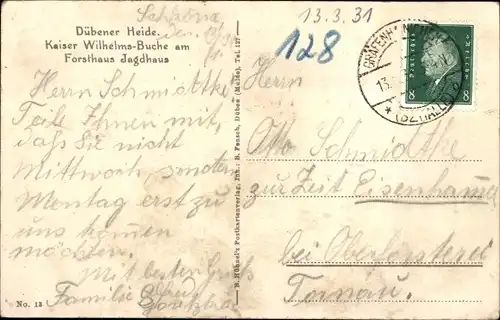 Dübener Heide.
Kaiser Wilhelms-Buche am
Forsthaus Jagdhaus
Schköna
den
13.3.31
128
Herrn Schmidtke
Teile Ihnen mit,
daß Sie nicht
Mittwoch sondern
Montag erst zu
uns kommen
möchten.
Mit besten Gruß
Familie
No. 13
B. Hühnel's Postkartenverlag, Inh.: B. Pensch, Düben (Mulde). Tel. 127
8 8
GRÄFENHAINICHEN
* (BZ. HALLE)
Herrn
Otto Schmidtke
zur Zeit Eisenhammer
bei Oberförsterei
Tornau.